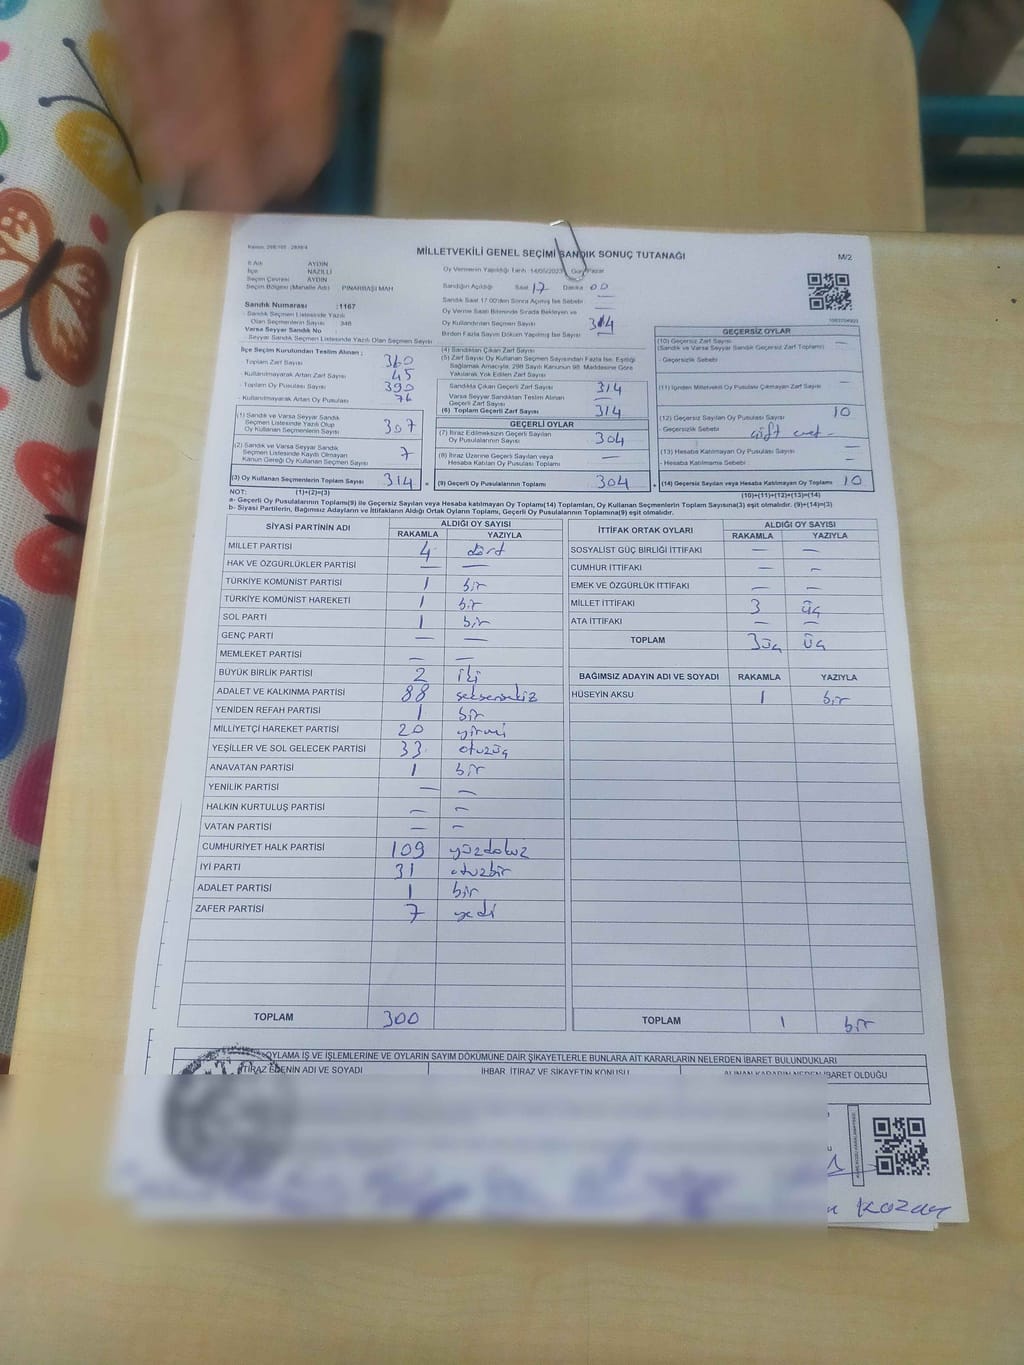 MİLLETVEKİLİ GENEL SEÇİMİ SANDIK SONUÇ TUTANAĞI
M/2
İl Adı AYDIN
İlçe NAZİLLİ
Seçim Çevresi AYDIN
Seçim Bölgesi (Mahalle Adı) PINARBAŞI MAH
Sandık Numarası :1167
Sandık Seçmen Listesinde Yazılı
Olan Seçmenlerin Sayısı 346
Varsa Seyyar Sandık No
Seyyar Sandık Seçmen Listesinde Yazılı Olan Seçmen Sayısı
Oy Vermenin Yapıldığı Tarih :14/05/2023 Gün: Pazar
Sandığın Açıldığı Saat 17 Dakika 00
Sandık Saat 17.00'den Sonra Açılmış İse Sebebi —
Oy Verme Saati Bitiminde Sırada Bekleyen ve
Oy Kullandırılan Seçmen Sayısı 314
Birden Fazla Sayım Döküm Yapılmış İse Sayısı
İlçe Seçim Kurulundan Teslim Alınan ;
Toplam Zarf Sayısı 360
Kullanılmayarak Artan Zarf Sayısı 45
Toplam Oy Pusulası Sayısı 390
Kullanılmayarak Artan Oy Pusulası 76
(1) Sandık ve Varsa Seyyar Sandık
Seçmen Listesinde Yazılı Olup
Oy Kullanan Seçmenlerin Sayısı 307
(2) Sandık ve Varsa Seyyar Sandık
Seçmen Listesinde Kayıtlı Olmayan
Kanun Gereği Oy Kullanan Seçmen Sayısı 7
(3) Oy Kullanan Seçmenlerin Toplam Sayısı 314
(1)+(2)=(3)
(4) Sandıktan Çıkan Zarf Sayısı
(5) Zarf Sayısı Oy Kullanan Seçmen Sayısından Fazla İse, Eşitliği
Sağlamak Amacıyla, 298 Sayılı Kanunun 98. Maddesine Göre
Yakılarak Yok Edilen Zarf Sayısı
Sandıkta Çıkan Geçerli Zarf Sayısı 314
Varsa Seyyar Sandıktan Teslim Alınan
Geçerli Zarf Sayısı —
(6) Toplam Geçerli Zarf Sayısı 314
GEÇERLİ OYLAR
(7) İtiraz Edilmeksizin Geçerli Sayılan
Oy Pusulalarının Sayısı 304
(8) İtiraz Üzerine Geçerli Sayılan veya
Hesaba Katılan Oy Pusulası Toplamı —
(9) Geçerli Oy Pusulalarının Toplamı 304
GEÇERSİZ OYLAR
(10) Geçersiz Zarf Sayısı —
(Sandık ve Varsa Seyyar Sandık Geçersiz Zarf Toplamı)
- Geçersizlik Sebebi
(11) İçinden Milletvekili Oy Pusulası Çıkmayan Zarf Sayısı —
(12) Geçersiz Sayılan Oy Pusulası Sayısı 10
- Geçersizlik Sebebi çift evet
(13) Hesaba Katılmayan Oy Pusulası Sayısı —
- Hesaba Katılmama Sebebi —
(14) Geçersiz Sayılan veya Hesaba Katılmayan Oy Toplamı 10
(10)+(11)+(12)+(13)=(14)
NOT:
a- Geçerli Oy Pusulalarının Toplamı(9) ile Geçersiz Sayılan veya Hesaba katılmayan Oy Toplamı(14) Toplamları, Oy Kullanan Seçmenlerin Toplam Sayısına(3) eşit olmalıdır. (9)+(14)=(3)
b- Siyasi Partilerin, Bağımsız Adayların ve İttifakların Aldığı Ortak Oyların Toplamı, Geçerli Oy Pusulalarının Toplamına(9) eşit olmalıdır.
SİYASİ PARTİNİN ADI ALDIĞI OY SAYISI
RAKAMLA YAZIYLA
MİLLET PARTİSİ 4 dört
HAK VE ÖZGÜRLÜKLER PARTİSİ — —
TÜRKİYE KOMÜNİST PARTİSİ 1 bir
TÜRKİYE KOMÜNİST HAREKETİ 1 bir
SOL PARTİ 1 bir
GENÇ PARTİ — —
MEMLEKET PARTİSİ — —
BÜYÜK BİRLİK PARTİSİ 2 iki
ADALET VE KALKINMA PARTİSİ 88 seksensekiz
YENİDEN REFAH PARTİSİ 1 bir
MİLLİYETÇİ HAREKET PARTİSİ 20 yirmi
YEŞİLLER VE SOL GELECEK PARTİSİ 33 otuzüç
ANAVATAN PARTİSİ 1 bir
YENİLİK PARTİSİ — —
HALKIN KURTULUŞ PARTİSİ — —
VATAN PARTİSİ — —
CUMHURİYET HALK PARTİSİ 109 yüzdokuz
İYİ PARTİ 31 otuzbir
ADALET PARTİSİ 1 bir
ZAFER PARTİSİ 7 yedi
TOPLAM 300
İTTİFAK ORTAK OYLARI ALDIĞI OY SAYISI
RAKAMLA YAZIYLA
SOSYALİST GÜÇ BİRLİĞİ İTTİFAKI — —
CUMHUR İTTİFAKI — —
EMEK VE ÖZGÜRLÜK İTTİFAKI — —
MİLLET İTTİFAKI 3 üç
ATA İTTİFAKI — —
TOPLAM 3üç üç
BAĞIMSIZ ADAYIN ADI VE SOYADI RAKAMLA YAZIYLA
HÜSEYİN AKSU 1 bir
TOPLAM 1 bir
OYLAMA İŞ VE İŞLEMLERİNE VE OYLARIN SAYIM DÖKÜMÜNE DAİR ŞİKAYETLERLE BUNLARA AİT KARARLARIN NELERDEN İBARET BULUNDUKLARI
İTİRAZ EDENİN ADI VE SOYADI İHBAR, İTİRAZ VE ŞİKAYETİN KONUSU ALINAN KARARIN NEDEN İBARET OLDUĞU